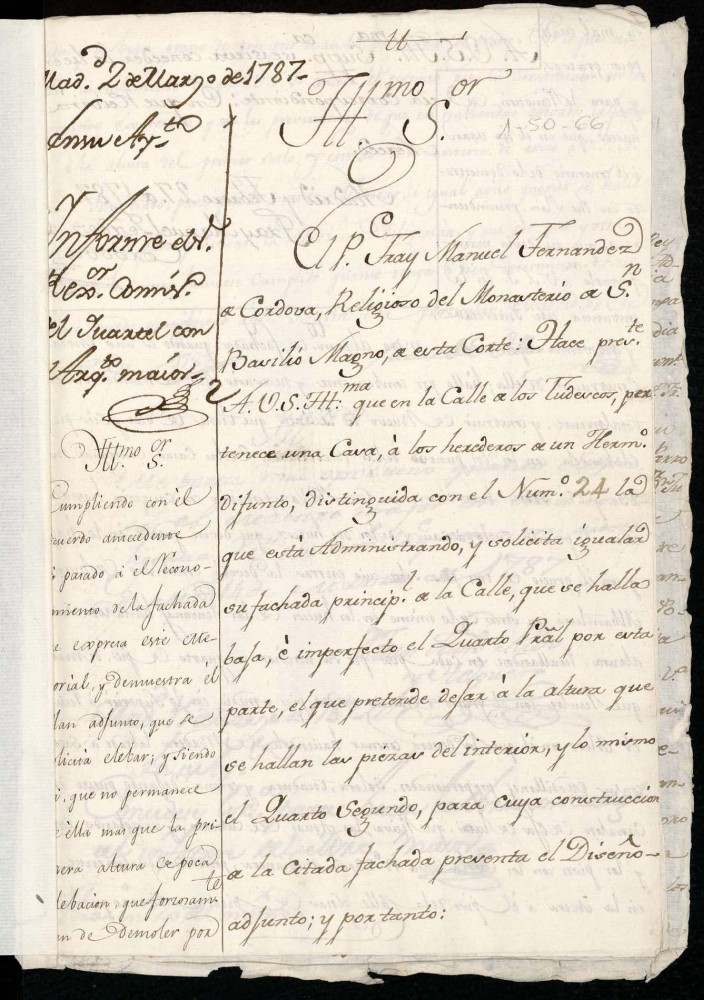 Mad.d 2 de Marzo de 1787.
En su Ay.to
Informe el
Cavallero
Rexor. Comis.o
del Quartel con
el Arq.to maior
Yllmo Sor.
Cumpliendo con él
acuerdo antecedente
é pasado á él recono-
cimiento de la fachada
que expresa este Me-
morial, y demuestra él
Plan adjunto, que se
solicita elebar; y siendo
asi, que no permanece
de élla mas que la pri-
mera altura de poca
elebacion, que forzosam.te
an de demoler por
Yllmo Sor.
1-50-66
El P.e Fray Manuel Fernandez
de Cordova, Religioso del Monasterio de S.n
Basilio Magno, de esta Corte: Hace pres.te
A. V. S. Yll.ma que en la Calle de los Tudescos, per
tenece una Casa, à los herederos de un Herm.o
Difunto, distinguida con el Num.o 24 la
que està Administrando, y solicita igualar
su fachada princip.l de la Calle, que se halla
baja, è imperfecto el Quarto Pral por esta
parte, el que pretende dejar à la altura que
se hallan las piezas del interior, y lo mismo
el Quarto Segundo, para cuya construccion
de la Citada fachada presenta el Diseño
adjunto; y por tanto: